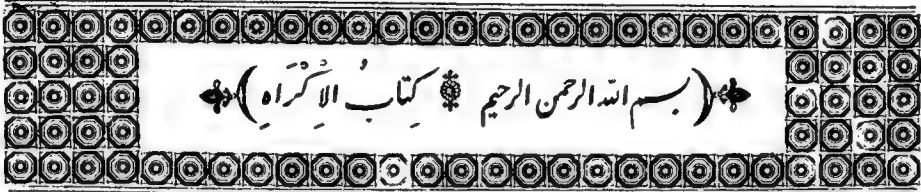 (بسم الله الرحمن الرحيم ۞ كِتَابُ الاِكْرَاهِ)